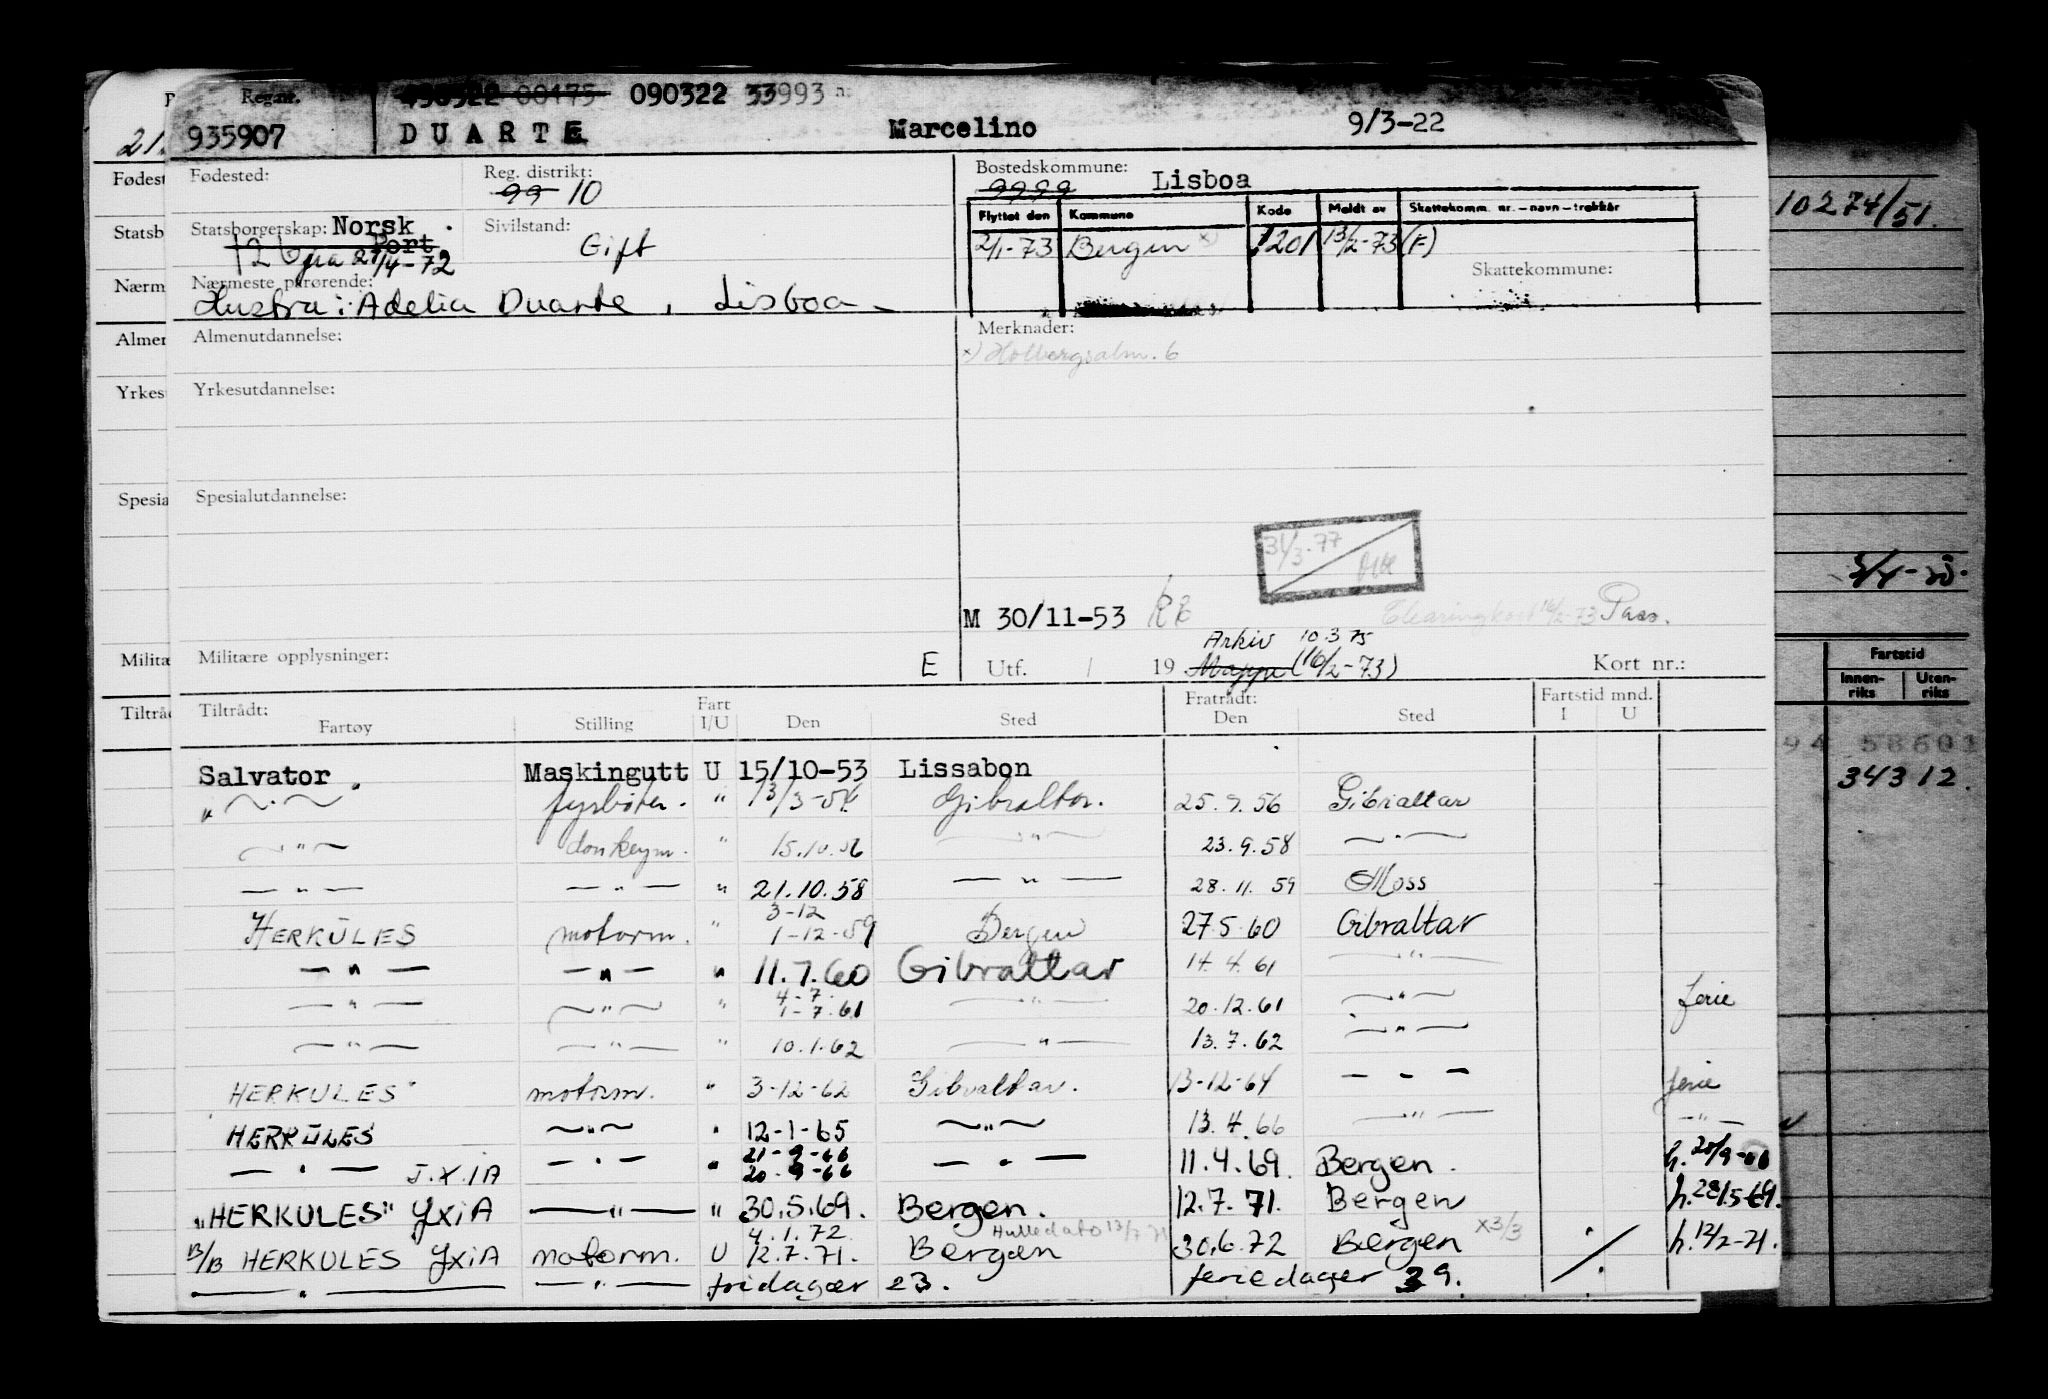 Reg.nr. 090322 33993
935907 DUARTE Marcelino 9/3-22
Fødested: Reg. distrikt: Bostedskommune:
99 10 9999 Lisboa
Statsborgerskap: Norsk Sivilstand: Gift
Port
126 fra 21/4-72
Flyttet den Kommune Kode Meldt av Skattekomm. nr. – navn – trekkår
2/1-73 Bergen x) 1201 13/2-73 (F)
Skattekommune:
Nærmeste pårørende:
Hustru: Adelia Duarte, Lisboa
Almenutdannelse: Merknader:
x) Holbergsalm. 6
Yrkesutdannelse:
Spesialutdannelse:
31/3.77
M 30/11-53 Clearingkort 16/2-73 Pass.
Arkiv 10.3.75
Militære opplysninger: E Utf. / 19 Mappe (16/2-73) Kort nr.:
Tiltrådt: Fratrådt: Fartstid mnd.
Fartøy Stilling Fart I/U Den Sted Den Sted I U
Salvator. Maskingutt U 15/10-53 Lissabon
" — " — fyrbøter. " 13/3-54 Gibraltar. 25.9.56 Gibraltar
— " — donkeym. " 15.10.56 — " — 23.9.58 — " —
— " — — " — " 21.10.58 — " — 28.11.59 Moss
3-12
HERKULES motorm. " 1-12-59 Bergen 27.5.60 Gibraltar
— " — — " — " 11.7.60 Gibraltar 14.4.61 — " —
4-7.
— " — — " — " 1-7.61 — " — 20.12.61 — " — ferie
— " — — " — " 10.1.62 — " — 13.7.62 — " —
HERKULES" motorm. " 3-12-62 Gibraltar. 13-12-64 — " — ferie
HERKULES — " — " 12-1-65 — " — 13.4.66 — " — — " —
21-9-66
— " — J.X.I A — " — " 20-9-66 — " — 11.4.69. Bergen. h. 20/9-66
"HERKULES" JXIA — " — " 30.5.69. Bergen. 12.7.71. Bergen h. 28/5-69.
4.1.72. Hulledato 13/7 71
B/B HERKULES JXIA motorm. U 12.7.71. Bergen 30.6.72 Bergen x3/3 h. 12/7-71.
— " — — " — fridager 23. feriedager 39.
21.
Fødest
Statsb
Nærm
Almen
Yrkes
Spesia
Militæ
Tiltråd
10274/51.
Fartstid
Innen-riks Uten-riks
94 58601
34312.